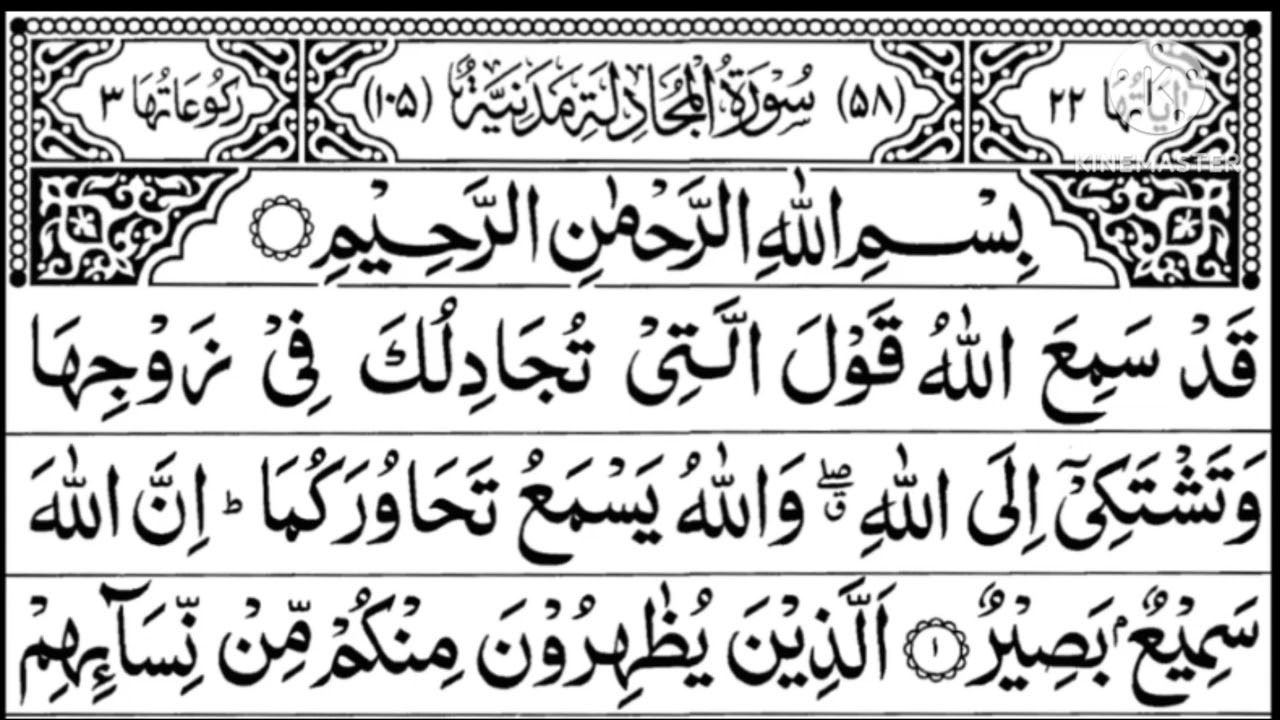 اٰيَاتُهَا ٢٢ (٥٨) سُوْرَةُ الْمُجَادِلَةِ مَدَنِيَّةٌ (١٠٥) رُكُوْعَاتُهَا ٣
KINEMASTER
بِسْمِ اللّٰهِ الرَّحْمٰنِ الرَّحِيْمِ
قَدْ سَمِعَ اللّٰهُ قَوْلَ الَّتِيْ تُجَادِلُكَ فِيْ زَوْجِهَا
وَتَشْتَكِيْٓ اِلَى اللّٰهِ ۖق وَاللّٰهُ يَسْمَعُ تَحَاوُرَكُمَا ؕ اِنَّ اللّٰهَ
سَمِيْعٌۢ بَصِيْرٌ ١ اَلَّذِيْنَ يُظٰهِرُوْنَ مِنْكُمْ مِّنْ نِّسَآءِهِمْ